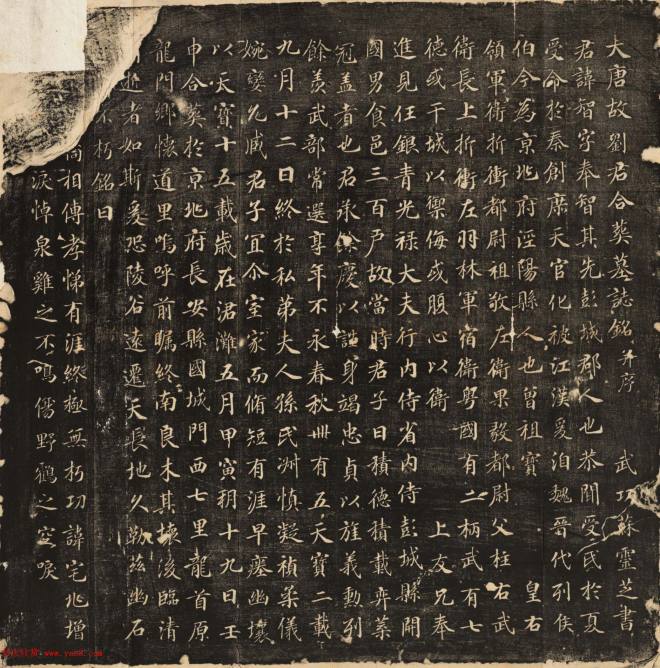 大唐故劉君合葬墓誌銘并序 武功蘇靈芝書
君諱智字奉智其先彭城郡人也恭聞受氏於夏
受命於秦創廣天官化被江漢爰洎魏晉代列侯
伯今為京兆府涇陽縣人也曾祖寶 皇右
領軍衛折衝都尉祖敬左衛果毅都尉父柱右武
衛長上折衝左羽林軍宿衛粤國有二柄武有七
德或干城以禦侮或腹心以衛 上友兄奉
進見任銀青光禄大夫行內侍省內侍彭城縣開
國男食邑三百户故當時君子日積德積載弈葉
冠蓋者也君承餘慶以謹身竭忠貞以旌義勳列
餘羨武部常選享年不永春秋卌有五天寶二載
九月十二日終於私第夫人孫氏洲慎凝禎柔儀
婉孌允臧君子冝尒室家而脩短有涯早塟幽壤
以天寶十五載歲在涒灘五月甲寅朔十九日壬
申合葬於京兆府長安縣國城門西七里龍首原
龍門鄉懷道里嗚呼前矚終南良木其壞後臨清
逝者如斯爰恐陵谷遠遷天長地久勒兹幽石
不朽銘曰
尚相傳孝悌有涯終極無朽功諱宅兆增
淚悼泉雞之不鳴傷野鶴之空唳
www.yac8.com